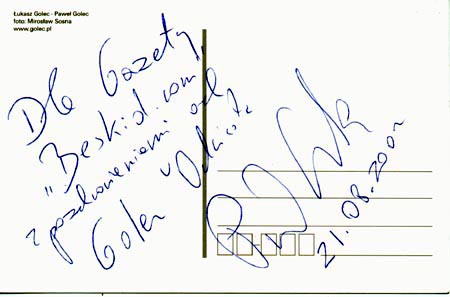 Łukasz Golec - Paweł Golec
foto: Mirosław Sosna
www.golec.pl
Dla Gazety
"Beskid.com"
z pozdrowieniami od
Golec u Orkiestra
21.08.2001